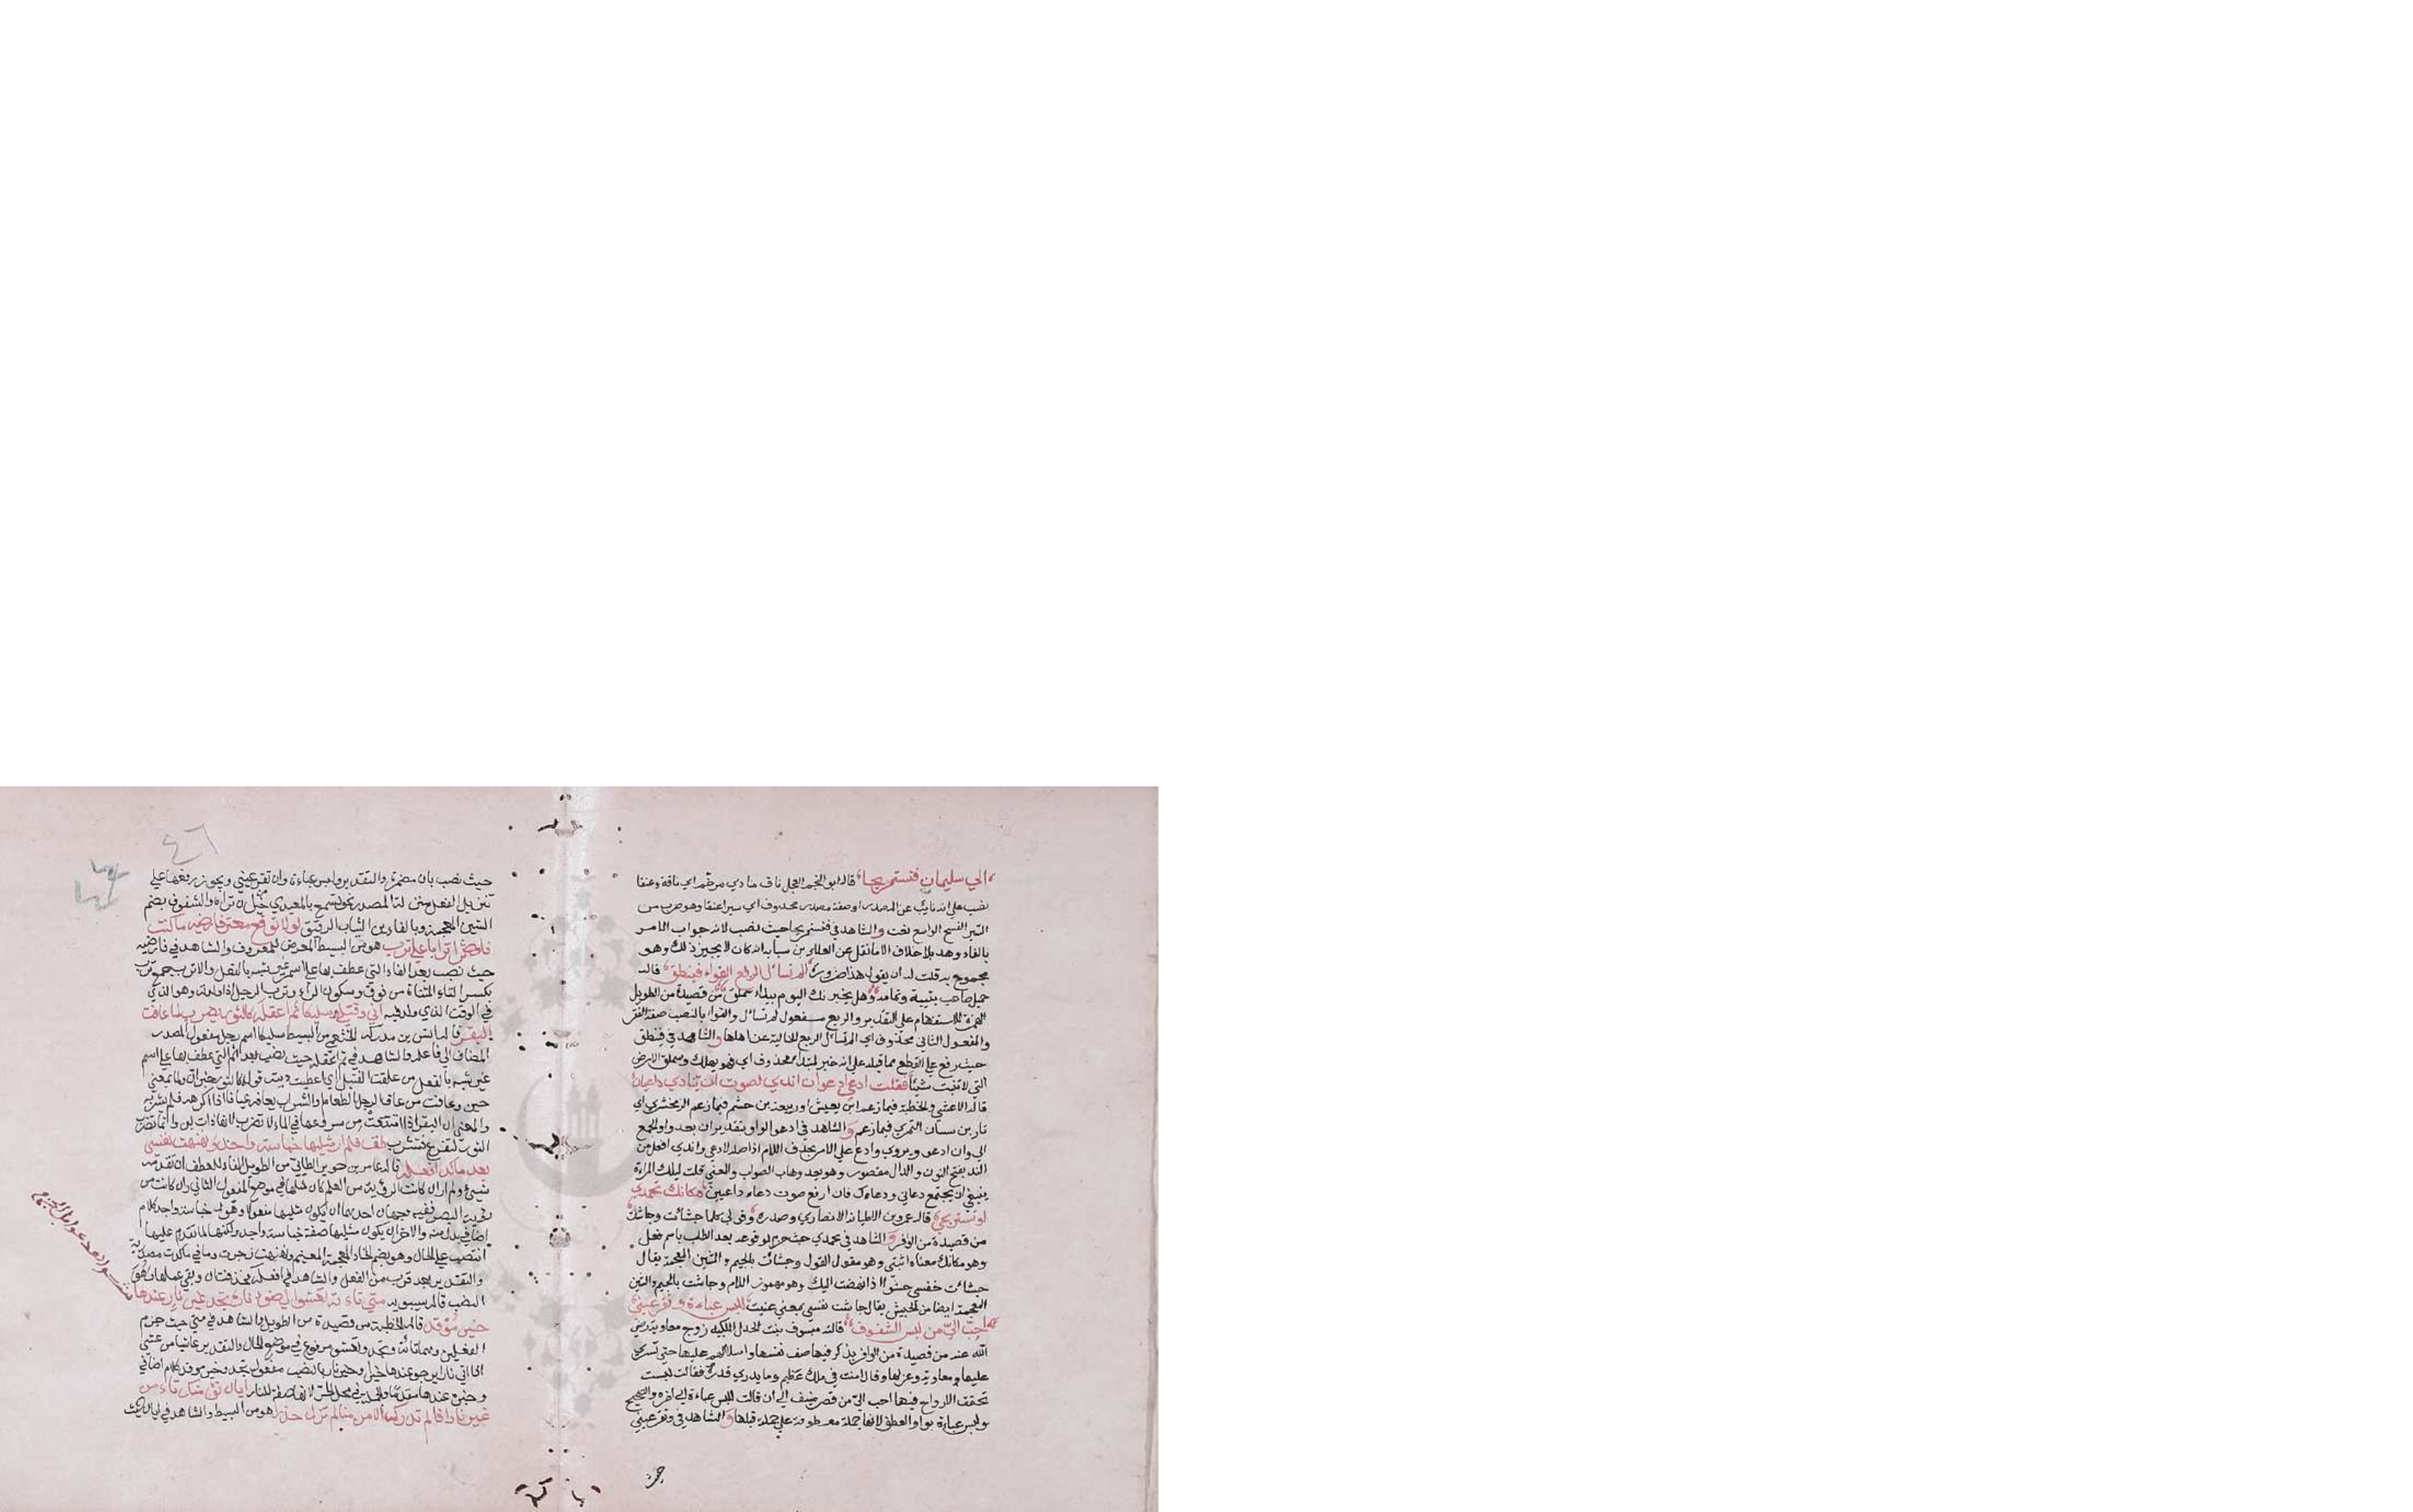 الي سليمان فنستريحا قاله ابو النجم العجلي ناق منادي مرخم اي ناقة وعنقا
نصب علي انه نايب عن المصدر او صفة مصدر محذوف اي سيرا عنقا وهو ضرب من
السير الفسيح الواسع نعت والشاهد في فنستريحا حيث نصب لانه جواب الامر
بالفاء وهذا بلا خلاف الا ما نقل عن العلاء بن سيابه انه كان لا يجيز ذلك وهو
محجوج به قلت له ان يقول هذا ضرورة الم تسأل الربع القواء فينطق قاله
جميل صاحب بثينة وتمامه وهل يخبرنك اليوم بيداء سملق من قصيدة من الطويل
الهمزة للاستفهام علي التقدير والربع مفعول لم تسأل والقواء بالنصب صفته القفر
والمفعول الثاني محذوف اي الم تسأل الربع الخالية عن اهلها والشاهد في فينطق
حيث رفع علي القطع مما قبله علي انه خبر لمبتدا محذوف اي فهو ينطق وسملق الارض
التي لا تنبت شيئا فقلت ادعي وادعوان اندي لصوت ان ينادي داعيان
قاله الاعشي والحطية فيما زعم ابن يعيش او ربيعة بن جشم فيما زعم الزمخشري اي
ثار بن سنان النمري فيما زعم والشاهد في ادعو الواو بتقدير ان بعد واو الجمع
اي وان ادعو ويروي وادع علي الامر بحذف اللام اذ اصله لادعي واندي افعل من
الندا بفتح النون والدال مقصور وهو بعد ذهاب الصوت والمعني قلت لتلك المراة
ينبغي ان يجتمع دعائي ودعاءك فان ارفع صوت دعاء داعيين مكانك تحمدي
او تستريحي قاله عمرو بن الاطنابة الانصاري وصدره وقولي كلما جشأت وجاشت
من قصيدة من الوافر والشاهد في تحمدي حيث جزم لوقوعه بعد الطلب باسم فعل
وهو مكانك معناه اثبتي وهو مقول القول وجشأت بالجيم والشين المعجمة يقال
جشأت نفسي جشوا اذا نهضت اليك وهو مهموز اللام وجاشت بالجيم والشين
المعجمة ايضا من الجيش يقال جاشت نفسي بمعني غثيت للبس عباءة وتقر عيني
احب الي من لبس الشفوف قالته ميسون بنت بحدل الكلبيه زوج معاوية رضي
الله عنه من قصيدة من الوافر تذكر فيها صف نفسها واسلافهم عليها حتي تسري
عليها معاوية وعزلها وقال لها انت في ملك عظيم وما يدري قدره فقالت لبيت
تخفق الارواح فيها احب الي من قصر منيف الي ان قالت للبس عباءة الي اخره والصحيح
ولبس عباءة بواو العطف لانها جملة معطوفة علي جملة قبلها والشاهد في وتقر عيني
حيث
٤٦
حيث نصب بان مضمرة والتقدير ولبس عباءة وان تقر عيني ويجوز رفعها علي
تنزيل الفعل منزلة المصدر نحو تسمع بالمعيدي خير من ان تراه والشفوف بضم
الشين المعجمة وبالفاءين الثياب الرقيق لولا توقع معتر فارضيه ما كنت
اوثر اترابا علي ترب هو من البسيط المعتر المتعرض للمعروف والشاهد في فارضيه
حيث نصب بعد الفاء التي عطف بها علي اسم غير شبيه بالفعل والاتراب جمع ترب
بكسر التاء المثناة من فوق وسكون الراء وترب الرجل لداته وهو الذي
في الوقت الذي ولد فيه اني وقتلي سليكا ثم اعقله كالثور يضرب لما عافت
البقر قاله انس بن مدركه الخثعمي من البسيط سليكا اسم رجل مفعول المصدر
المضاف الي فاعله والشاهد في ثم اعقله حيث نصب بعد ثم التي عطف بها علي اسم
غير شبيه بالفعل من عقلت القتيل اي اعطيت ديته قوله كالثور خبر ان ولما بمعني
حين وعافت من عاف الرجل الطعام والشراب يعافه عيافا اذا كرهه فلم يشربه
والمعني ان البقر اذا امتنعت من شروعها في الماء لا تضرب لانها ذات لبن وانما يضرب
الثور لتفزع فتشرب فلم ار مثلها خباسة واحد ونهنهت نفسي
بعد ما كدت افعله قاله عامر بن جوين الطائي من الطويل الفاء للعطف ان تقدمه
شيئ ولم ار ان كانت الرؤية من العلم كان مثلها في موضع المفعول الثاني وان كانت من
رؤية البصر ففيه وجهان احدهما ان يكون مثلها مفعولا وقوله خباسة واحد كلام
اضافي بدل منه والاخر ان يكون مثلها صفة خباسة واحد ولكنها لما تقدم عليها
انتصب علي الحال وهو بضم الخاء المعجمة المغنم ونهنهت زجرت وما في ما كدت مصدرية
والتقدير بعد قرب من الفعل والشاهد في افعله فحذفت ان وبقي عملها وهو
النصب قاله سيبويه متي تاته تعشو الي ضوء ناره تجد خير نار عندها
خير موقد قاله الحطية من قصيدة من الطويل والشاهد في متي حيث جزم
الفعلين وهما تاته وتجد وتعشو مرفوع في موضع الحال والتقدير عاشيا من عشي
اذا اتي نارا يرجو عندها خيرا وخير نار بالنصب مفعول تجد وخير موقد كلام اضافي
وخبره عندها مقدما والجملة في محل الجر لانها صفة للنار ايان نؤمنك تامن
غيرنا واذا لم تدرك الامن منا لم تزل حذرا هو من البسيط والشاهد في ايان حيث
شواهد عوامل الجزم